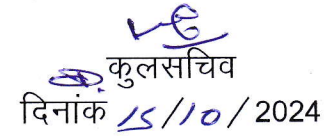 कुलसचिव
दिनांक 15/10/2024